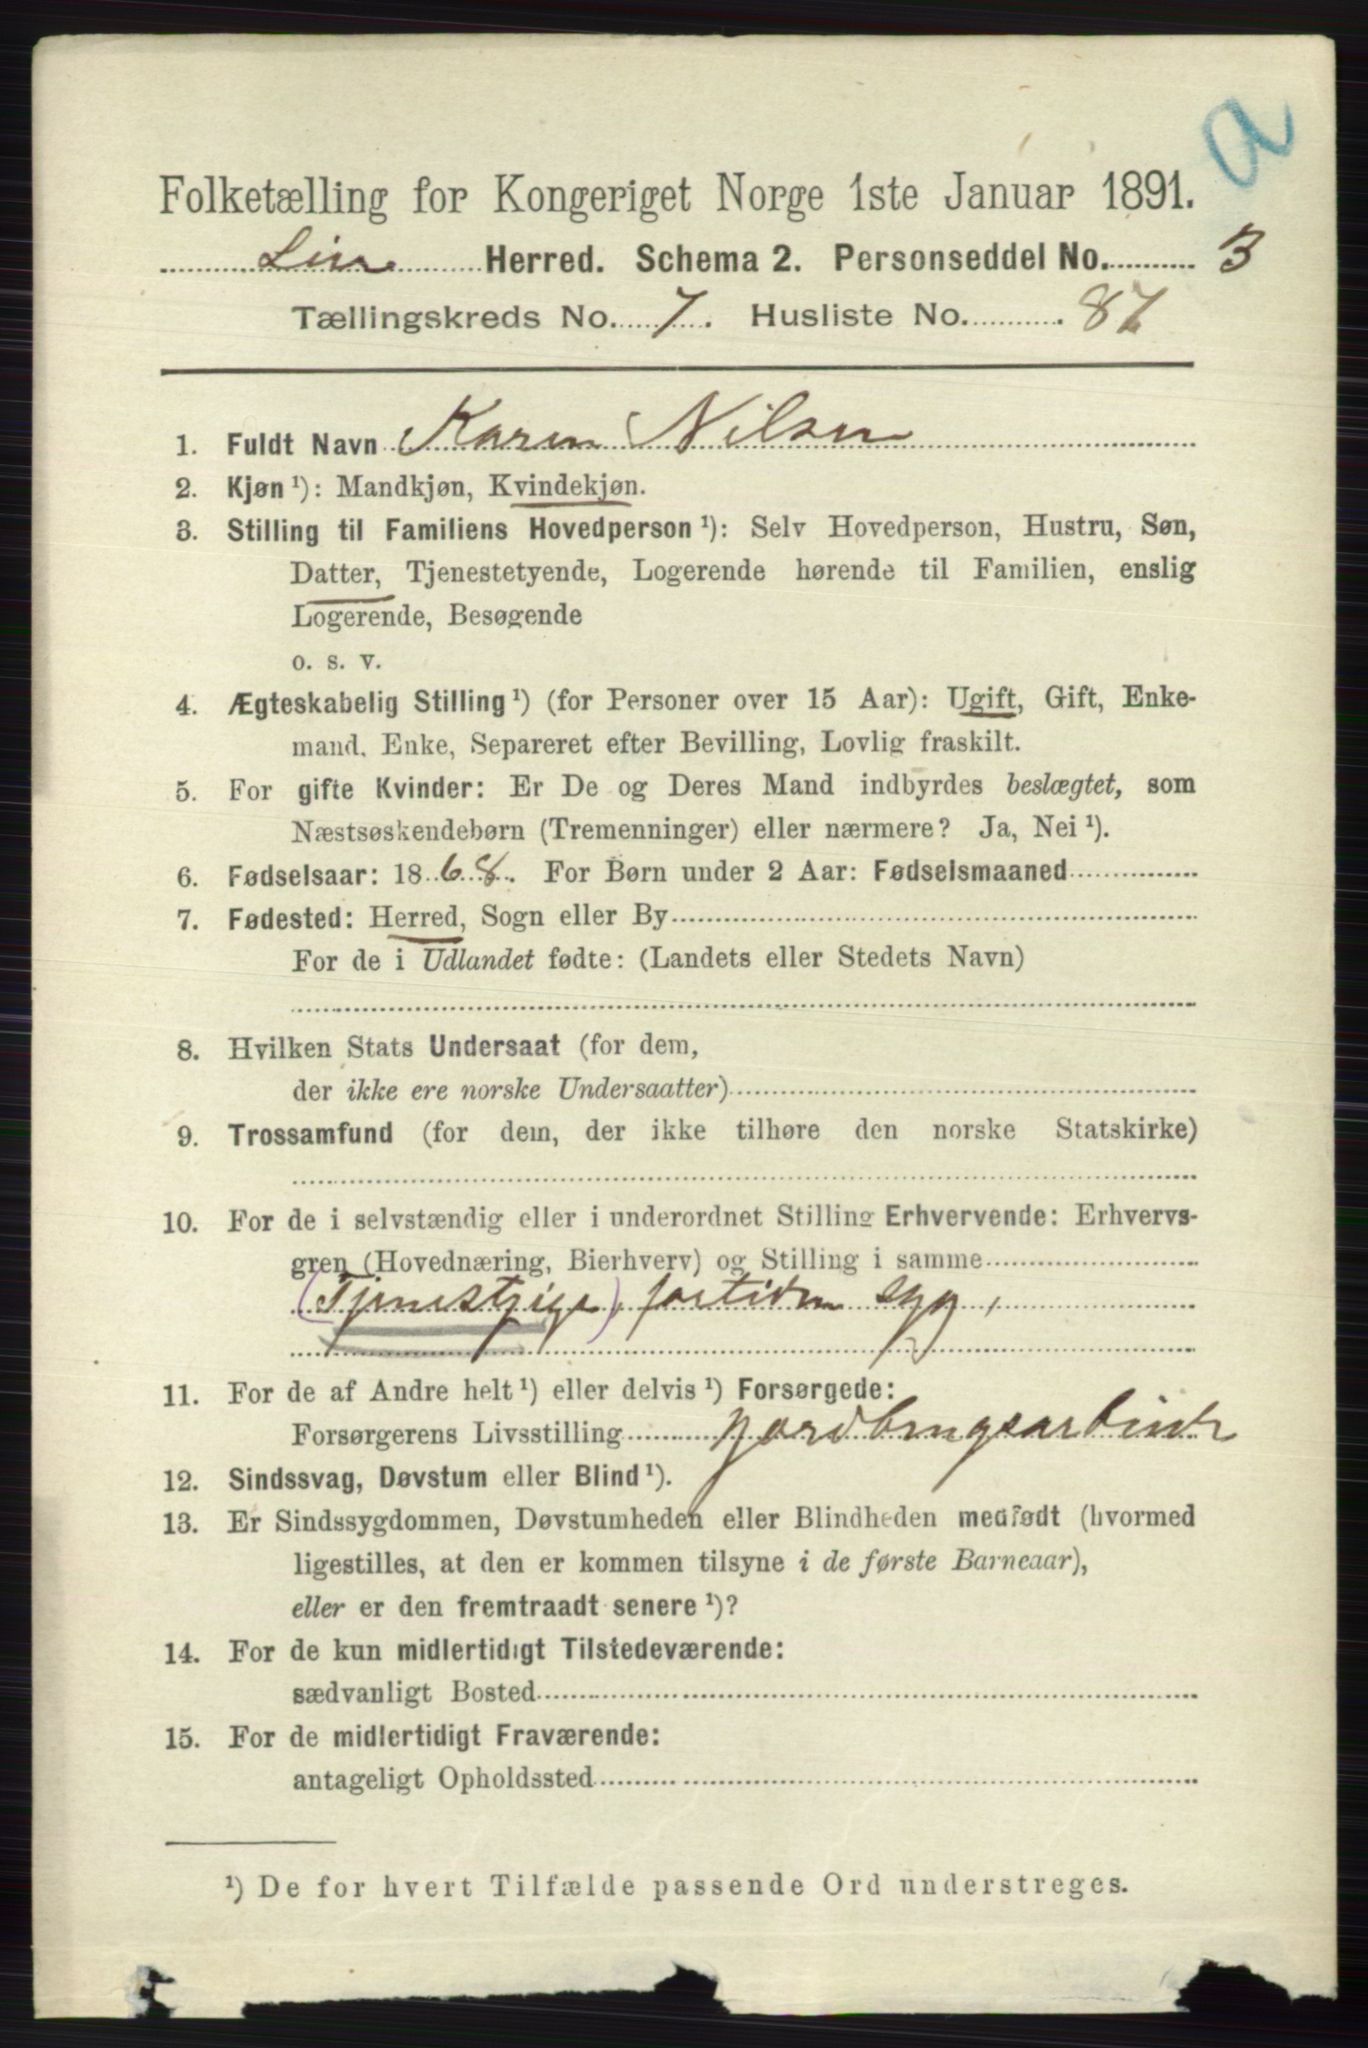 a
Folketælling for Kongeriget Norge 1ste Januar 1891.
Lier Herred. Schema 2. Personseddel No. 3
Tællingskreds No. 7. Husliste No. 87
1. Fuldt Navn Karen Nilsen
2. Kjøn ¹): Mandkjøn, Kvindekjøn.
3. Stilling til Familiens Hovedperson ¹): Selv Hovedperson, Hustru, Søn,
Datter, Tjenestetyende, Logerende hørende til Familien, enslig
Logerende, Besøgende
o. s. v.
4. Ægteskabelig Stilling ¹) (for Personer over 15 Aar): Ugift, Gift, Enke-
mand, Enke, Separeret efter Bevilling, Lovlig fraskilt.
5. For gifte Kvinder: Er De og Deres Mand indbyrdes beslægtet, som
Næstsøskendebørn (Tremenninger) eller nærmere? Ja, Nei ¹).
6. Fødselsaar: 1868. For Børn under 2 Aar: Fødselsmaaned
7. Fødested: Herred, Sogn eller By
For de i Udlandet fødte: (Landets eller Stedets Navn)
8. Hvilken Stats Undersaat (for dem,
der ikke ere norske Undersaatter)
9. Trossamfund (for dem, der ikke tilhøre den norske Statskirke)
10. For de i selvstændig eller i underordnet Stilling Erhvervende: Erhvervs-
gren (Hovednæring, Bierhverv) og Stilling i samme
(Tjenestpige), fortiden syg,
11. For de af Andre helt ¹) eller delvis ¹) Forsørgede:
Forsørgerens Livsstilling Jordbrugsarbeider
12. Sindssvag, Døvstum eller Blind ¹).
13. Er Sindssygdommen, Døvstumheden eller Blindheden medfødt (hvormed
ligestilles, at den er kommen tilsyne i de første Barneaar),
eller er den fremtraadt senere ¹)?
14. For de kun midlertidigt Tilstedeværende:
sædvanligt Bosted
15. For de midlertidigt Fraværende:
antageligt Opholdssted
¹) De for hvert Tilfælde passende Ord understreges.